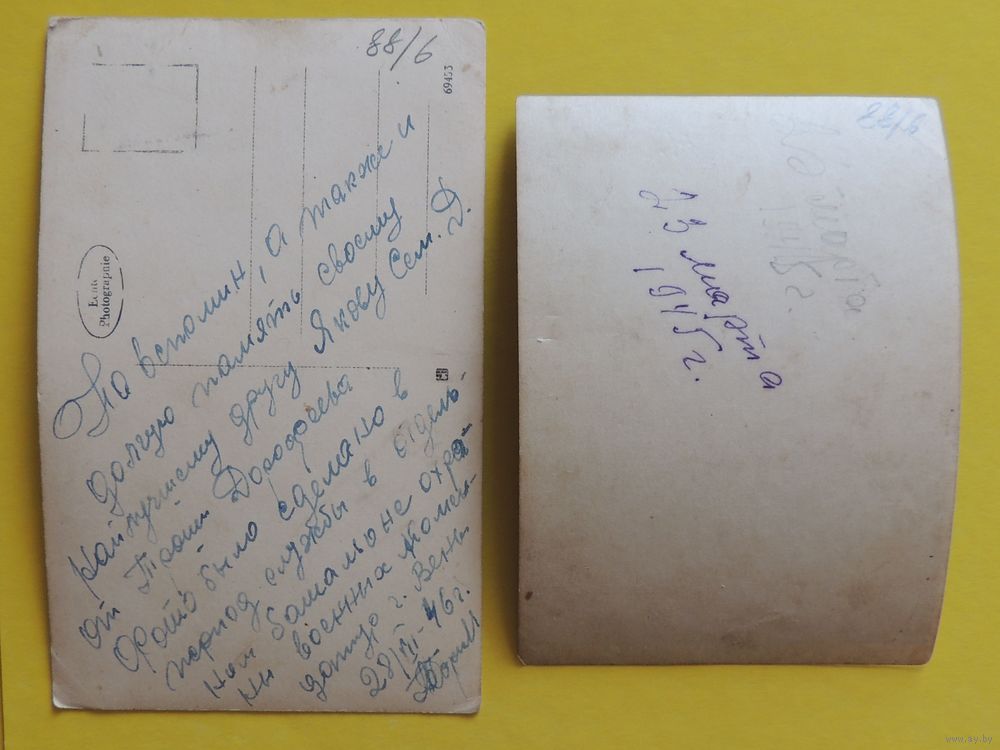 88/6
69453
Echte
Photographie
На вспомин, а также и
долгую память своему
найлучшему другу Якову Сем. Д.
от Дорофеева
Фото было сделано в
период службы в отдель-
ном батальоне охра-
ны военных комен-
датур г. Вены
28/VI-46г.
88/6
23 марта
1945г.
23 марта
1945г.
www.ay.by